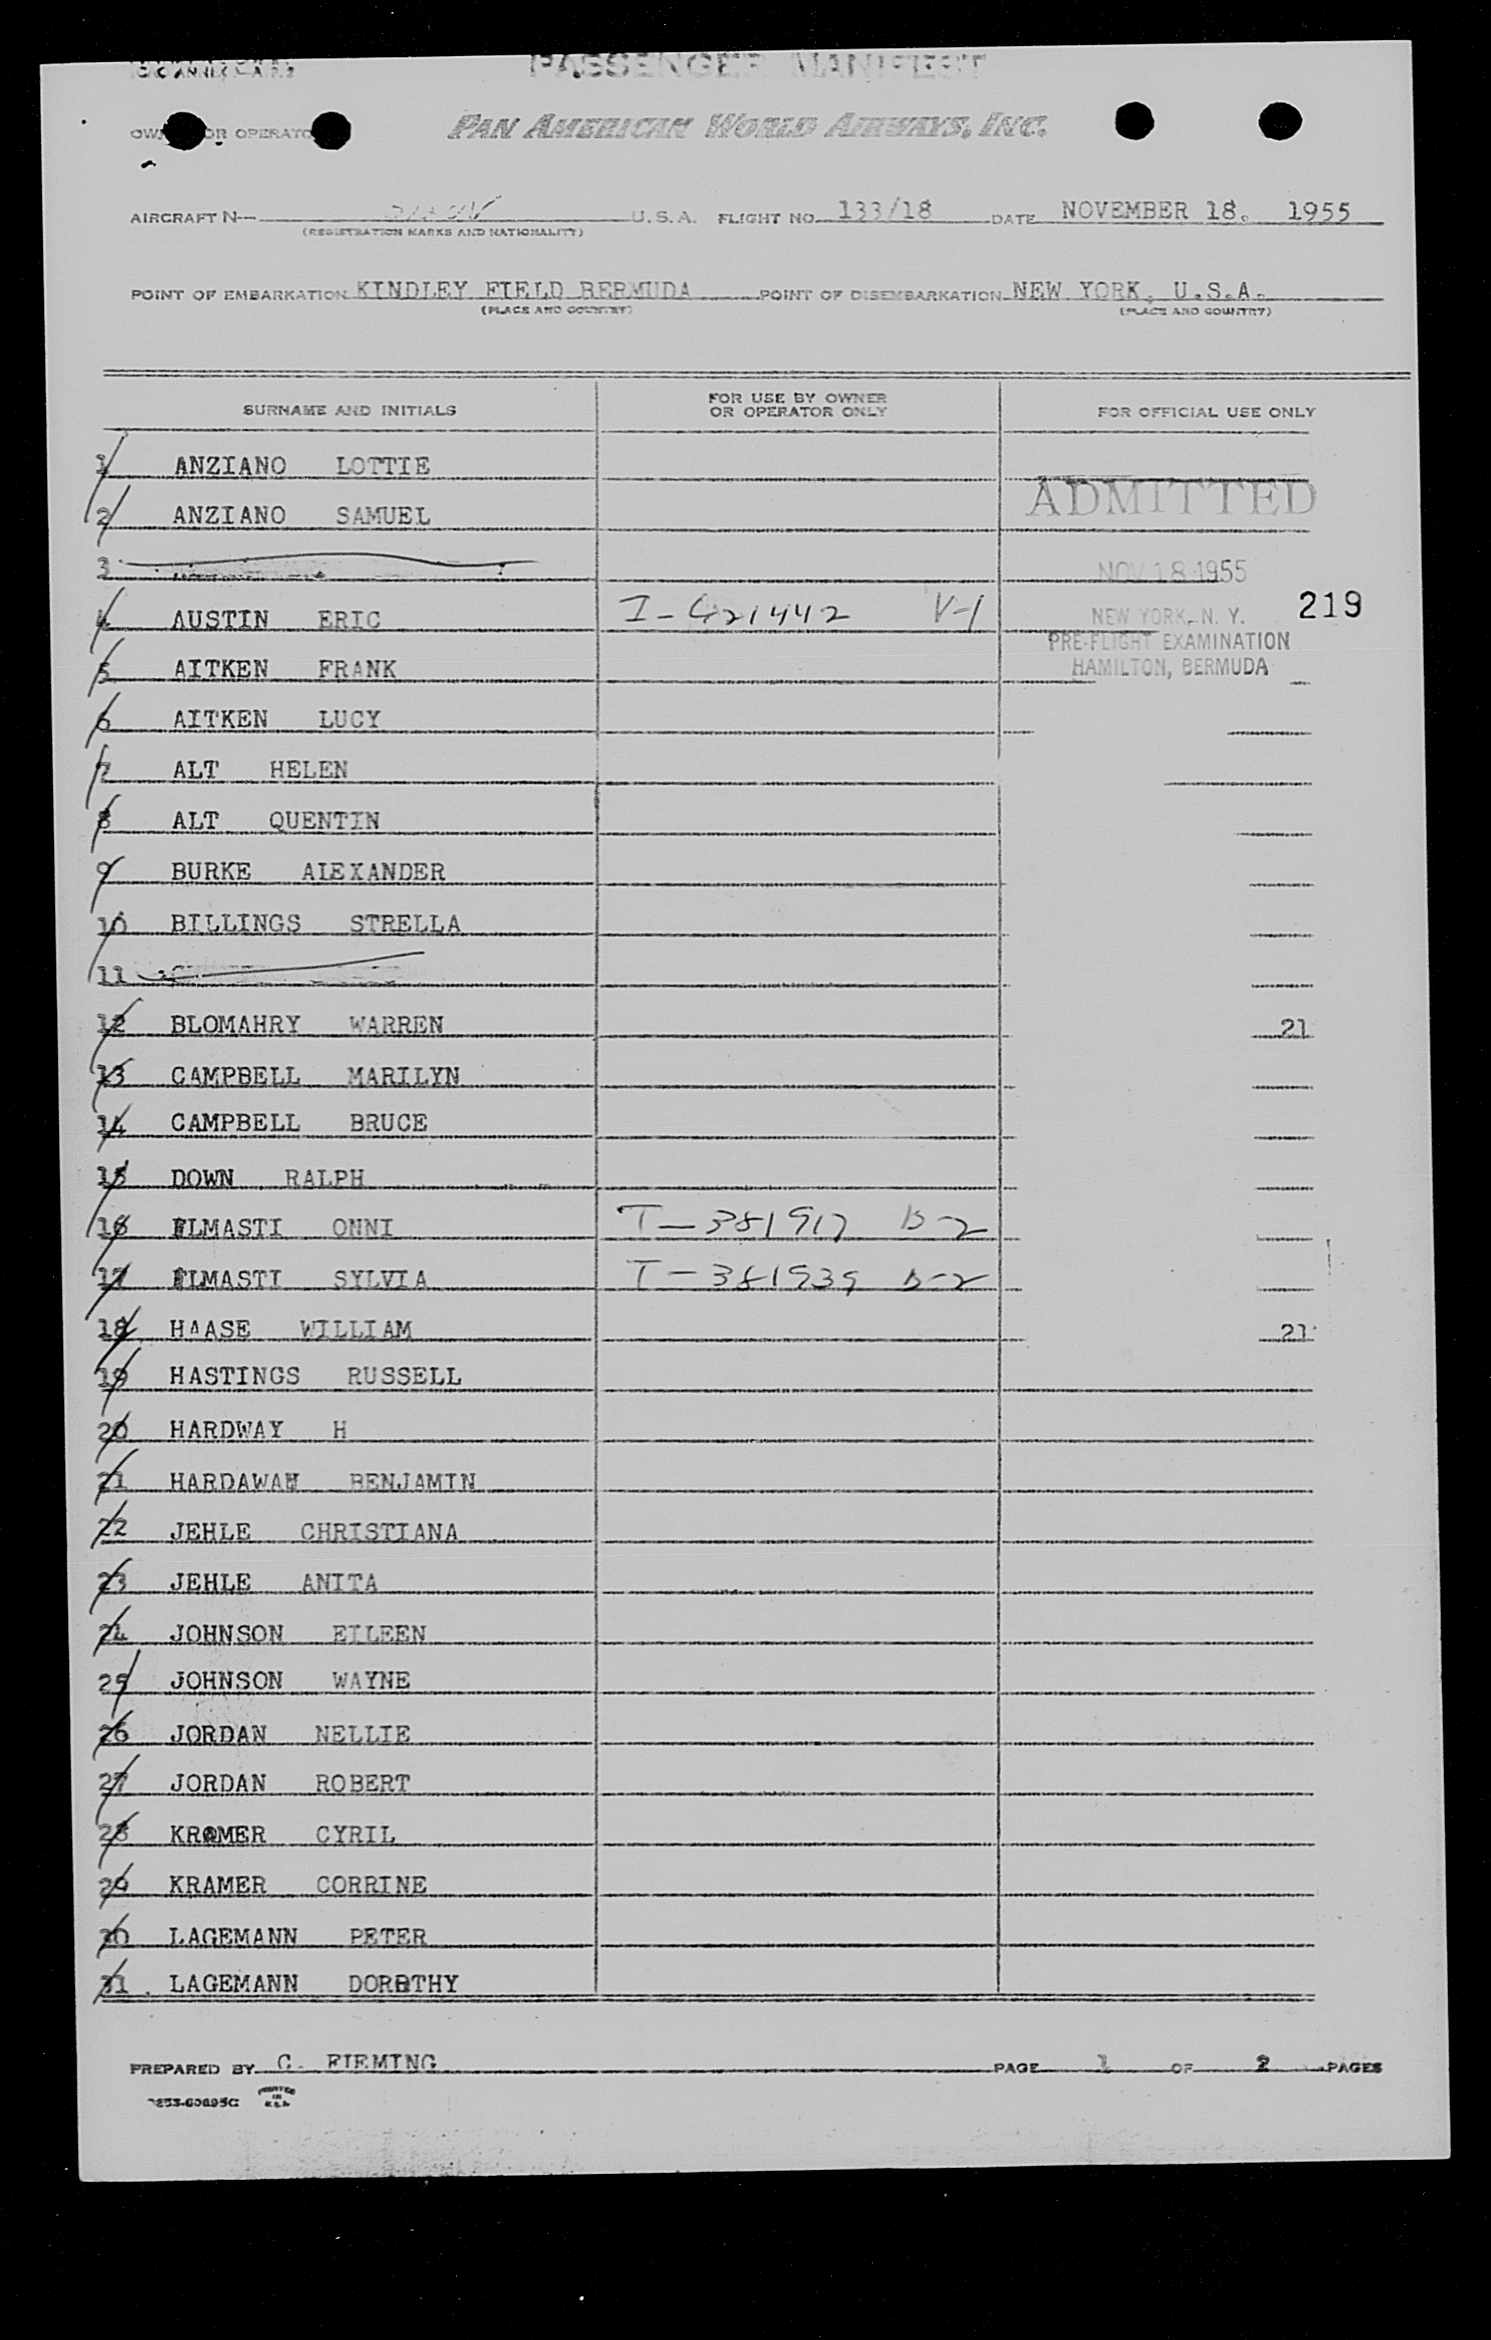 PASSENGER MANIFEST
OWNER OR OPERATOR PAN AMERICAN WORLD AIRWAYS, INC.
AIRCRAFT N— U.S.A. FLIGHT NO. 133/18 DATE NOVEMBER 18. 1955
(REGISTRATION MARKS AND NATIONALITY)
POINT OF EMBARKATION KINDLEY FIELD BERMUDA POINT OF DISEMBARKATION NEW YORK, U.S.A.
(PLACE AND COUNTRY) (PLACE AND COUNTRY)
SURNAME AND INITIALS FOR USE BY OWNER OR OPERATOR ONLY FOR OFFICIAL USE ONLY
1 ANZIANO LOTTIE
ADMITTED
2 ANZIANO SAMUEL
3 NOV 18 1955
4 AUSTIN ERIC I-421442 V-1 NEW YORK, N. Y. 219
PRE-FLIGHT EXAMINATION
5 AITKEN FRANK HAMILTON, BERMUDA
6 AITKEN LUCY
7 ALT HELEN
8 ALT QUENTIN
9 BURKE ALEXANDER
10 BILLINGS STRELLA
11
12 BLOMAHRY WARREN 21
13 CAMPBELL MARILYN
14 CAMPBELL BRUCE
15 DOWN RALPH
16 ELMASTI ONNI T-381917 B-2
17 ELMASTI SYLVIA T-381939 B-2
18 HAASE WILLIAM 21
19 HASTINGS RUSSELL
20 HARDWAY H
21 HARDAWAH BENJAMIN
22 JEHLE CHRISTIANA
23 JEHLE ANITA
24 JOHNSON EILEEN
25 JOHNSON WAYNE
26 JORDAN NELLIE
27 JORDAN ROBERT
28 KRAMER CYRIL
29 KRAMER CORRINE
30 LAGEMANN PETER
31 LAGEMANN DOROTHY
PREPARED BY C. FLEMING PAGE 1 OF 2 PAGES
PRINTED
IN
U.S.A.